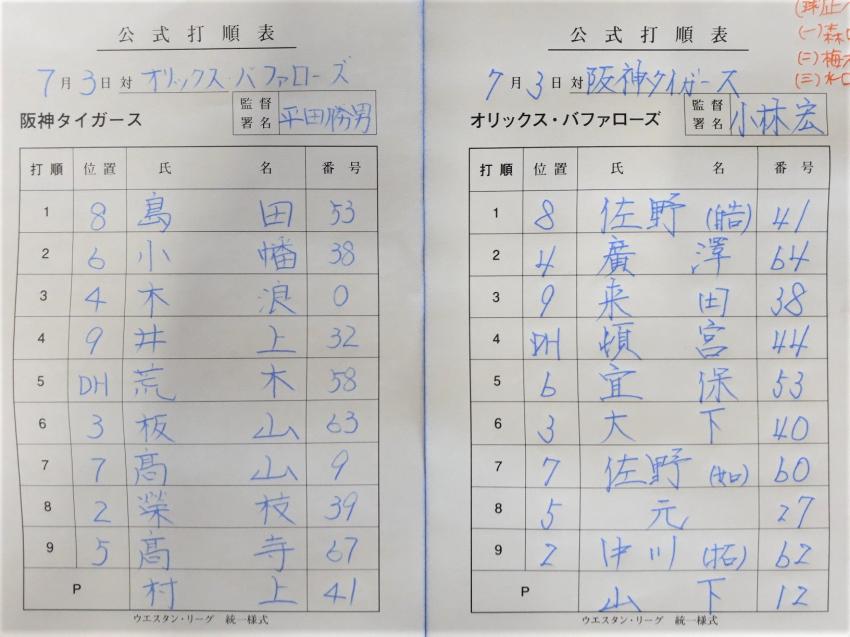 公式打順表
7月3日対 オリックス・バファローズ
阪神タイガース 監督署名 平田勝男
打順 位置 氏名 番号
1 8 島田 53
2 6 小幡 38
3 4 木浪 0
4 9 井上 32
5 DH 荒木 58
6 3 板山 63
7 7 髙山 9
8 2 榮枝 39
9 5 髙寺 67
P 村上 41
ウエスタン・リーグ 統一様式
公式打順表
7月3日対 阪神タイガース
オリックス・バファローズ 監督署名 小林宏
打順 位置 氏名 番号
1 8 佐野(皓) 41
2 4 廣澤 64
3 9 来田 38
4 DH 頓宮 44
5 6 宜保 53
6 3 大下 40
7 7 佐野(如) 60
8 5 元 27
9 2 中川(拓) 62
P 山下 12
ウエスタン・リーグ 統一様式
(球)
(一)森
(二)梅
(三)水